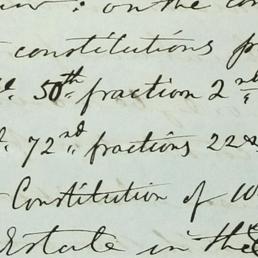 : on the con
constitutions pr
50th fraction 2nd
72nd fractions 22
Constitution of W
Estate in the